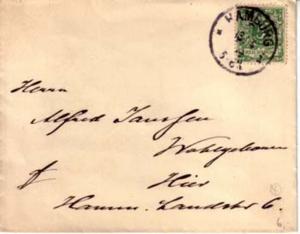 HAMBURG
Herrn
Alfred Janssen
Wohlgeboren
Hier
Hamm. Landstr 6.